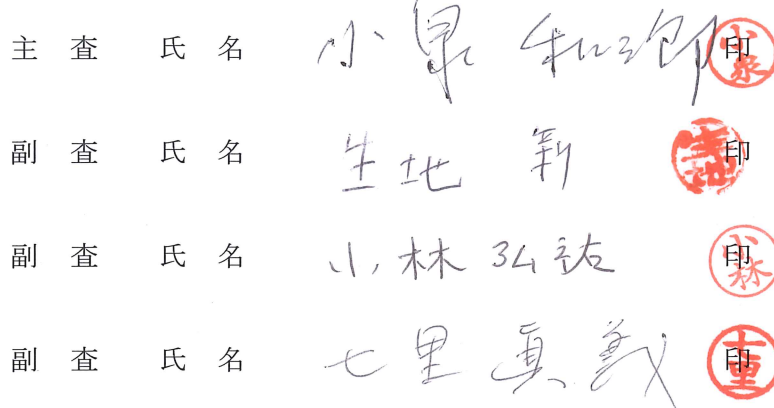 主査 氏名 小泉 和三郎 印 小泉
副査 氏名 生地 新 印 生地
副査 氏名 小林 弘祐 印 小林
副査 氏名 七里 眞義 印 七里